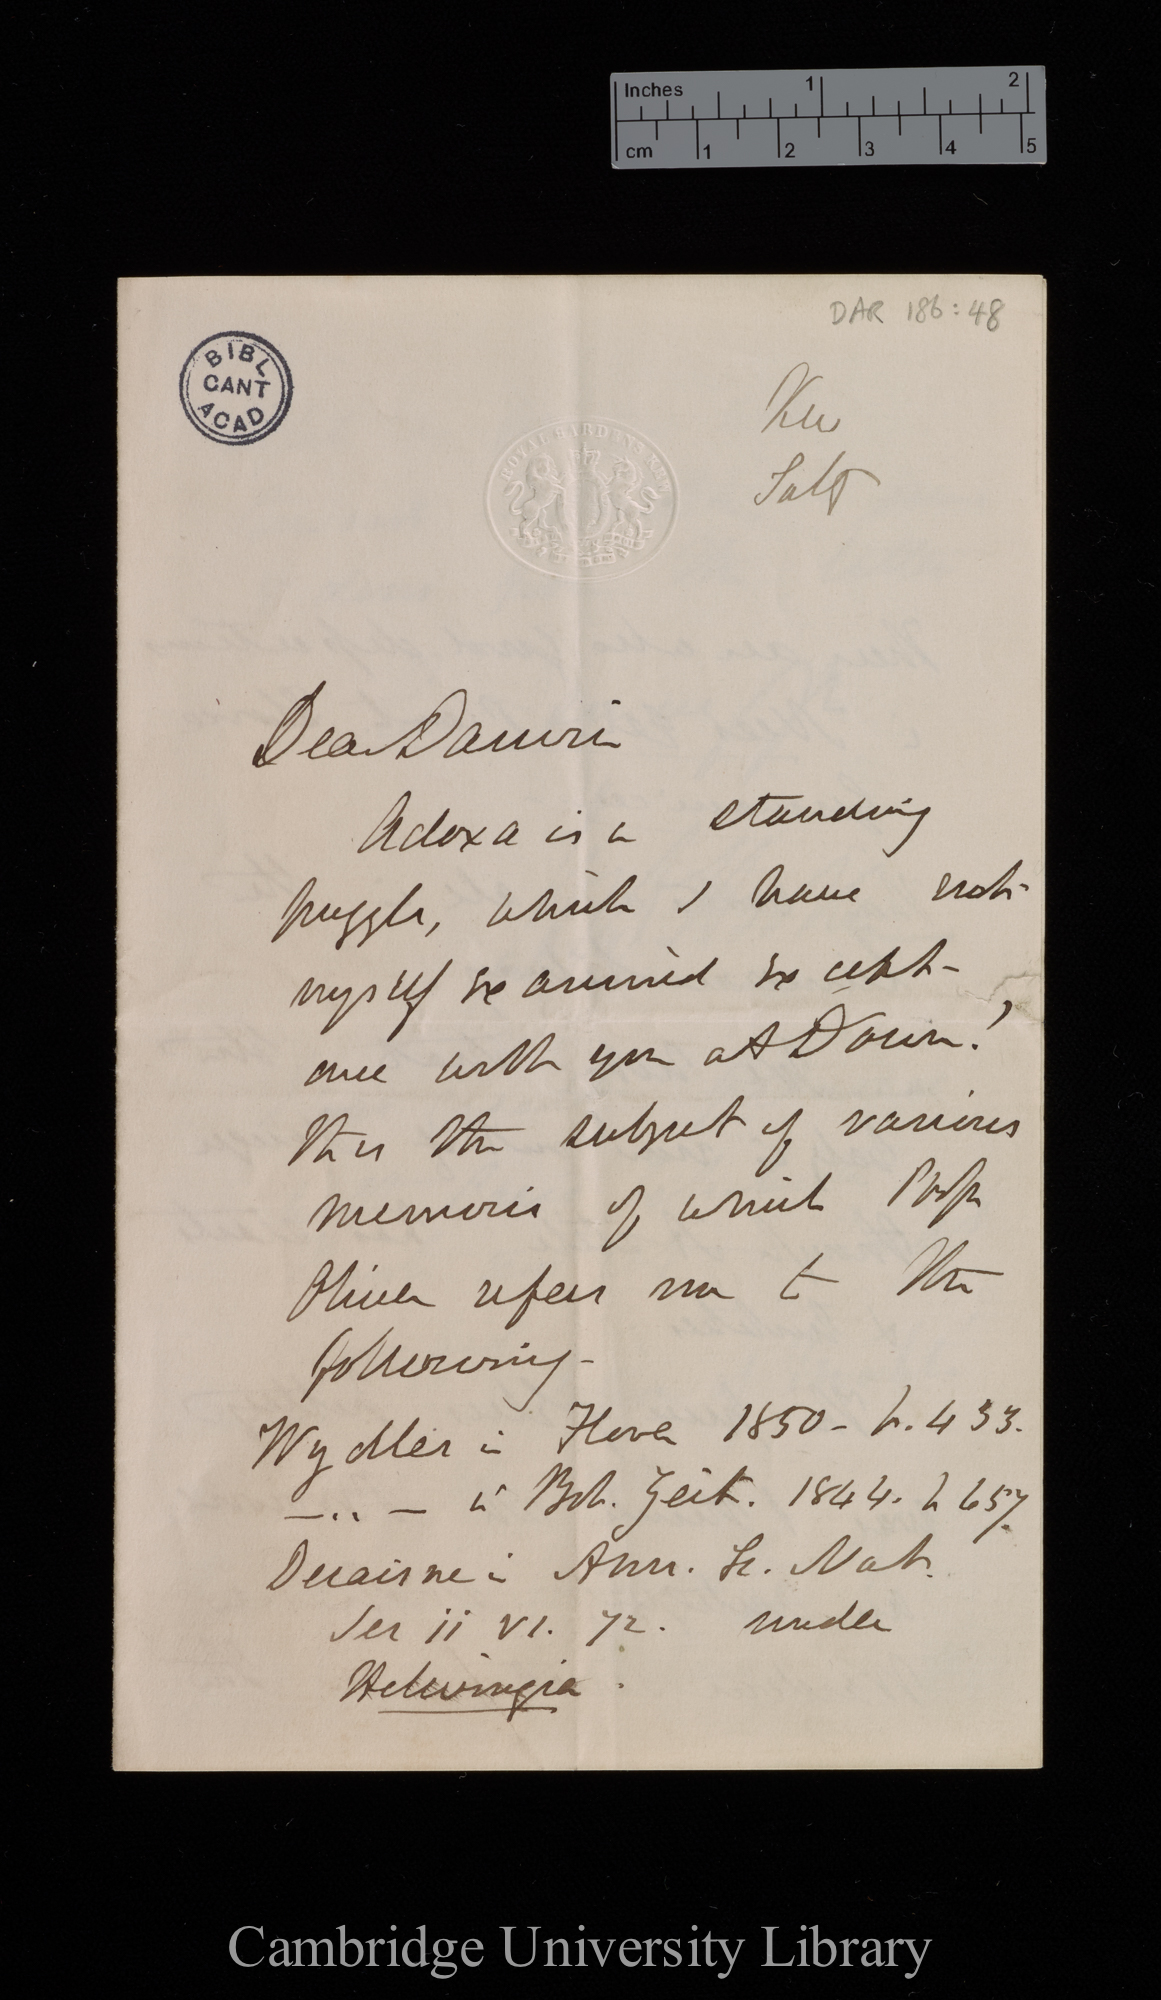 Inches 1 2
cm 1 2 3 4 5
DAR 186:48
BIBL
CANT
ACAD
ROYAL GARDENS KEW
Kew
Saty
Dear Darwin
Adoxa is a standing
puzzle, which I have not
myself examined except
once with you at Down!
It is the subject of various
memoirs of which Profr
Oliver refers me to the
following—
Wydler in Flora 1850— p. 433.
— .. — in Bot. Zeit. 1844. p 657.
Decaisne in Ann. Sc. Nat.
Ser ii VI. 72. under
Helwingia.
Cambridge University Library